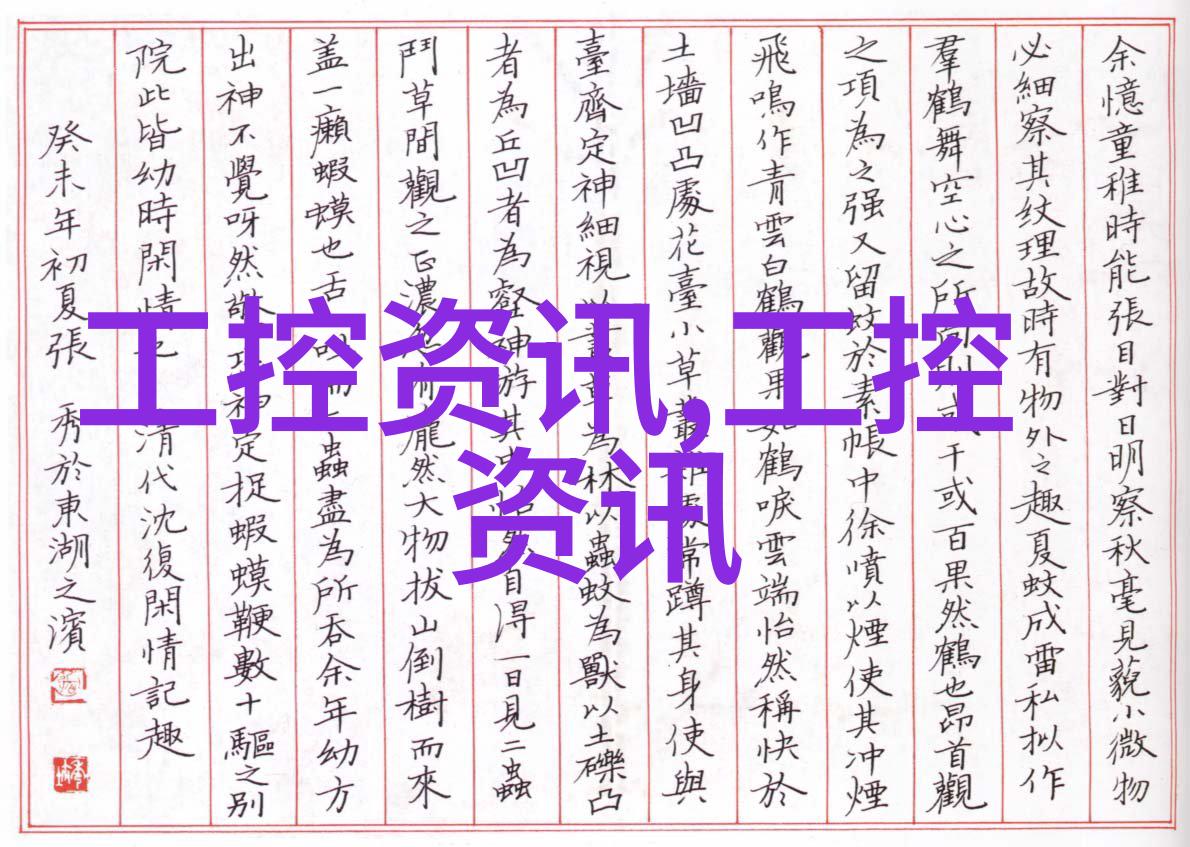 余憶童稚時能張目對日明察秋毫見藐小微物
必細察其纹理故時有物外之趣夏蚊成雷私拟作
羣鶴舞空心之所向則或千或百果然鶴也昂首觀
之項為之强又留蚊於素帳中徐噴以煙使其冲煙
飛鳴作青雲白鶴觀果如鶴唳雲端怡然稱快於
土墻凹凸處花臺小草叢雜處常蹲其身使與
臺齊定神細視以叢草為林以蟲蚊為獸以土礫凸
者為丘凹者為壑神游其中怡然自得一日見二蟲
鬥草間觀之正濃忽有龐然大物拔山倒樹而來
盖一癩蝦蟆也舌一吐而二蟲盡為所吞余年幼方
出神不覺呀然神定捉蝦蟆鞭數十驅之别
院此皆幼時閑情也 清代沈復閑情記趣
癸未年初夏張 秀於東湖之濱
工控资讯,工控
资讯